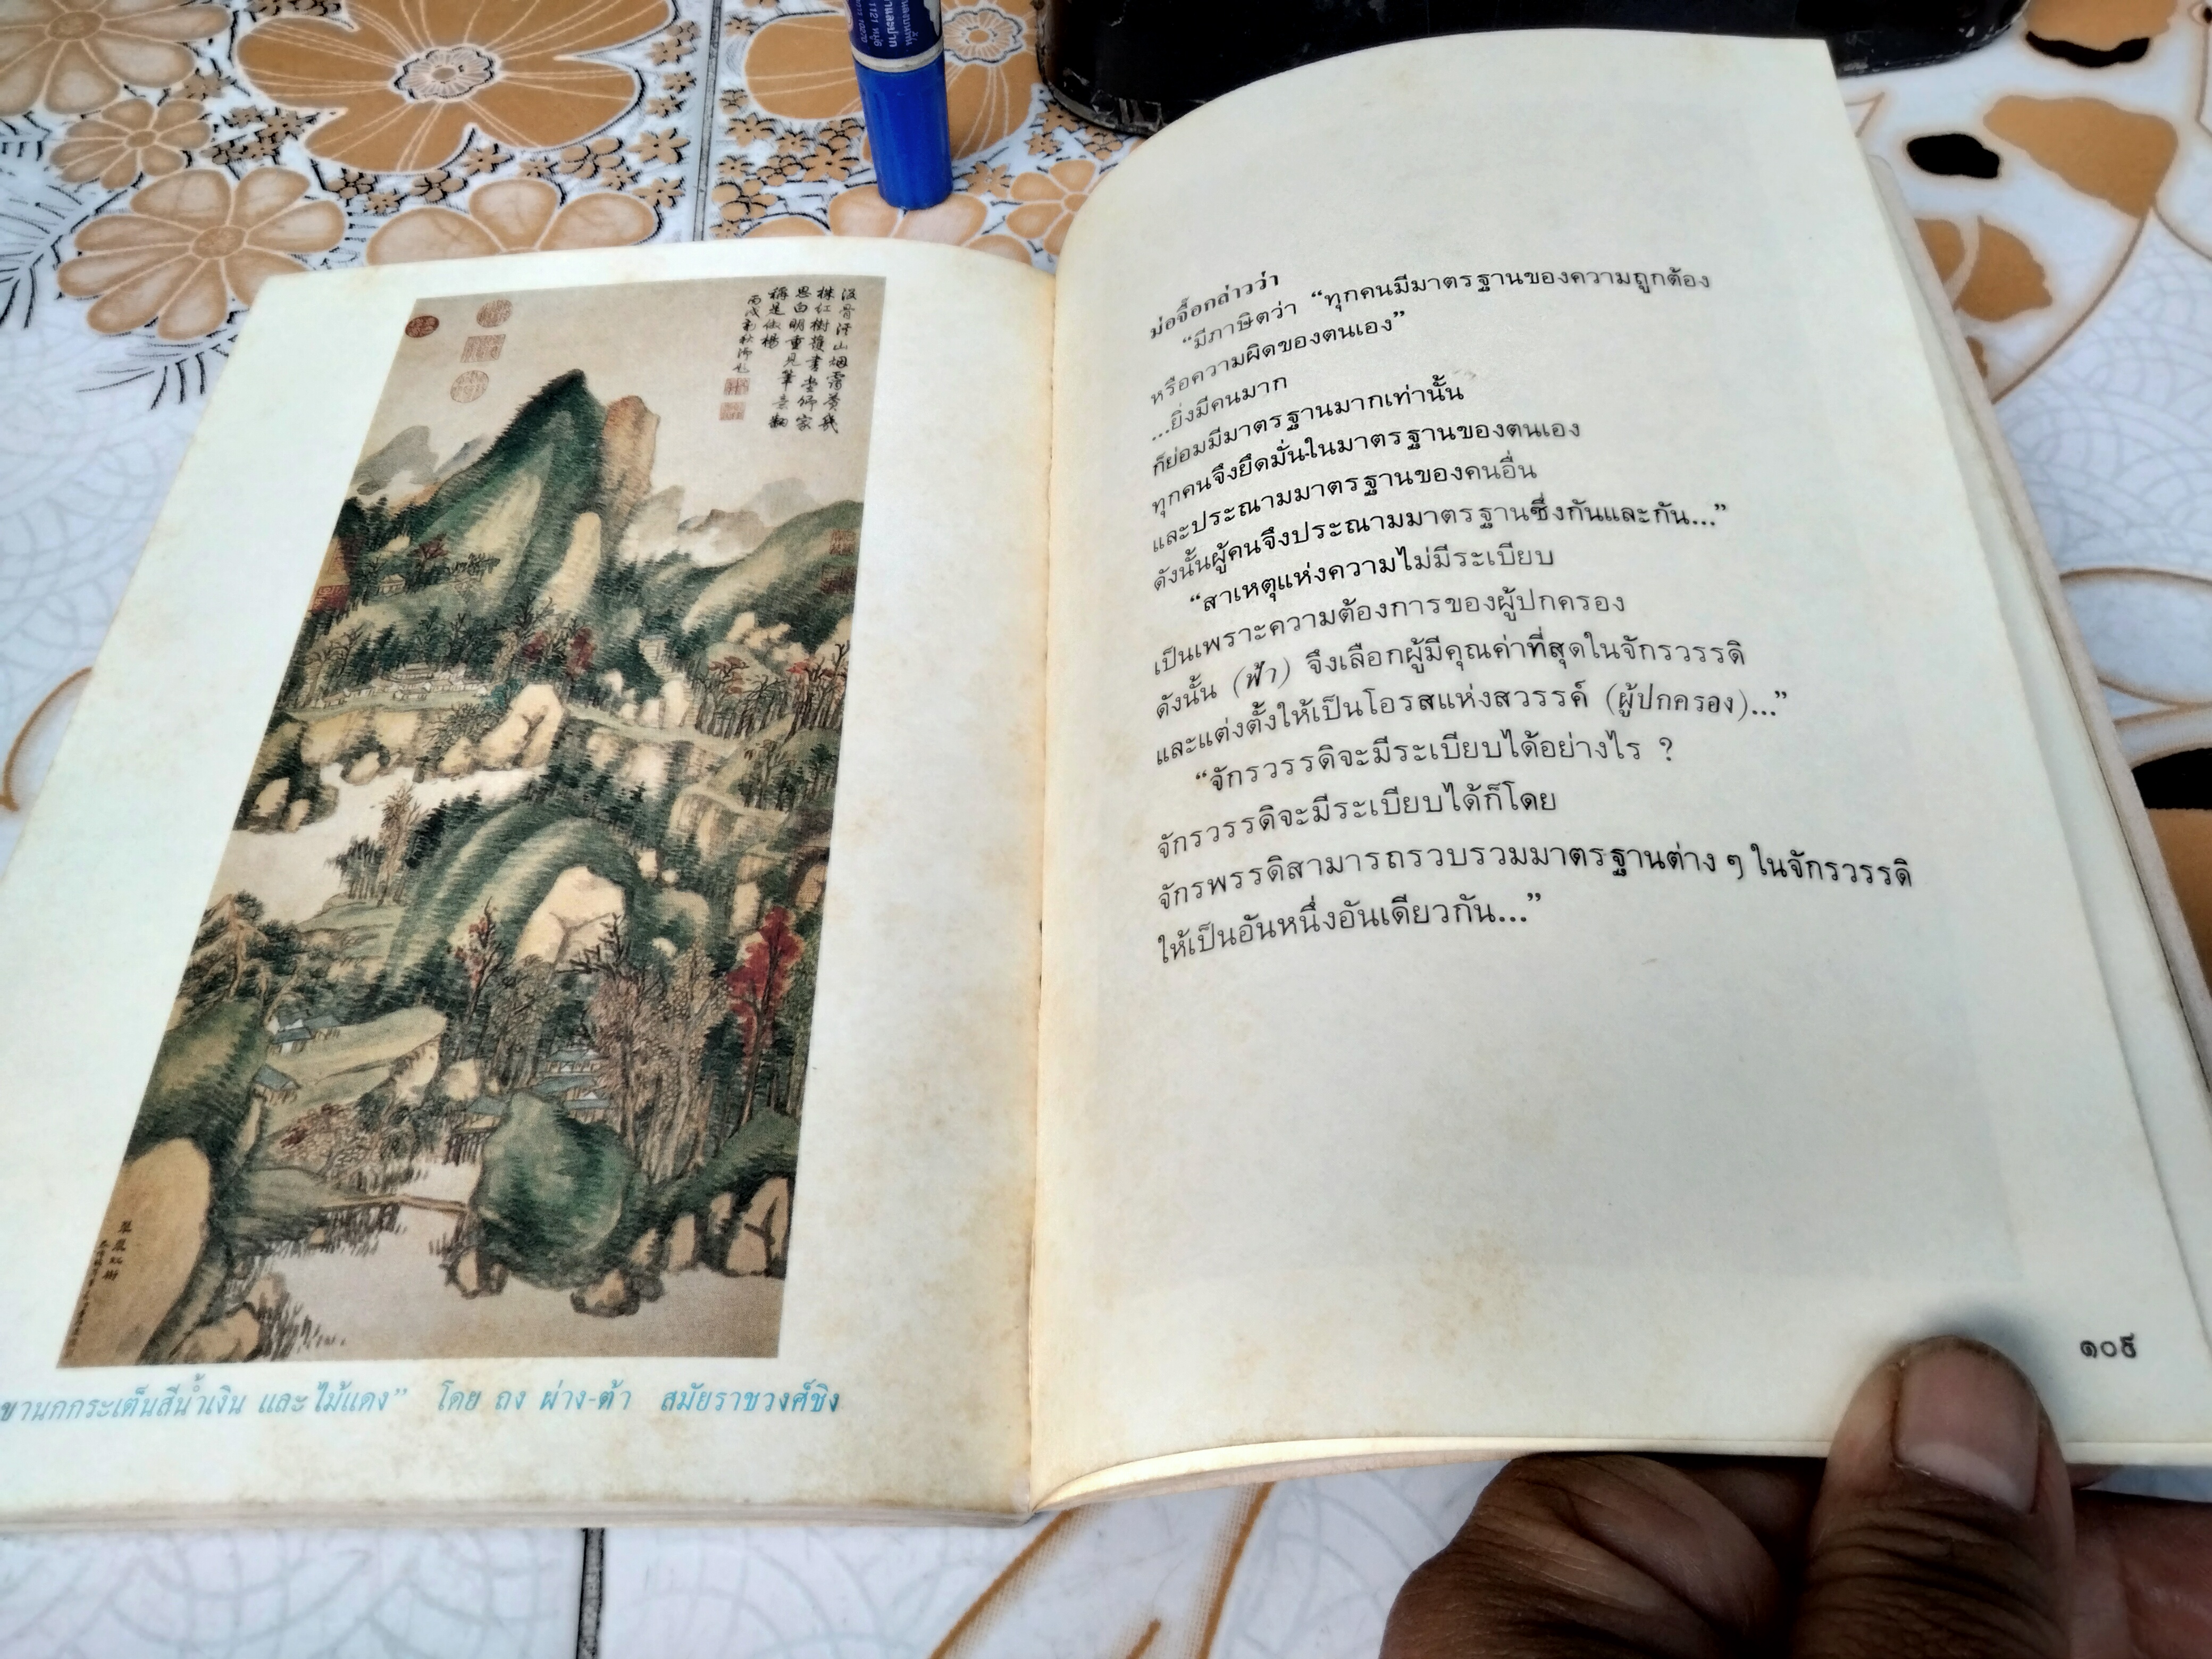 เขานกกระเต็นสีน้ำเงิน และไม้แดง” โดย ถง ผ่าง-ต้า สมัยราชวงศ์ชิง
ม่อจื๊อกล่าวว่า
“มีภาษิตว่า “ทุกคนมีมาตรฐานของความถูกต้อง
หรือความผิดของตนเอง”
...ยิ่งมีคนมาก
ก็ย่อมมีมาตรฐานมากเท่านั้น
ทุกคนจึงยึดมั่นในมาตรฐานของตนเอง
และประณามมาตรฐานของคนอื่น
ดังนั้นผู้คนจึงประณามมาตรฐานซึ่งกันและกัน...”
“สาเหตุแห่งความไม่มีระเบียบ
เป็นเพราะความต้องการของผู้ปกครอง
ดังนั้น (ฟ้า) จึงเลือกผู้มีคุณค่าที่สุดในจักรวรรดิ
และแต่งตั้งให้เป็นโอรสแห่งสวรรค์ (ผู้ปกครอง)...”
“จักรวรรดิจะมีระเบียบได้อย่างไร ?
จักรวรรดิจะมีระเบียบได้ก็โดย
จักรพรรดิสามารถรวบรวมมาตรฐานต่าง ๆ ในจักรวรรดิ
ให้เป็นอันหนึ่งอันเดียวกัน...”
๑๐๕